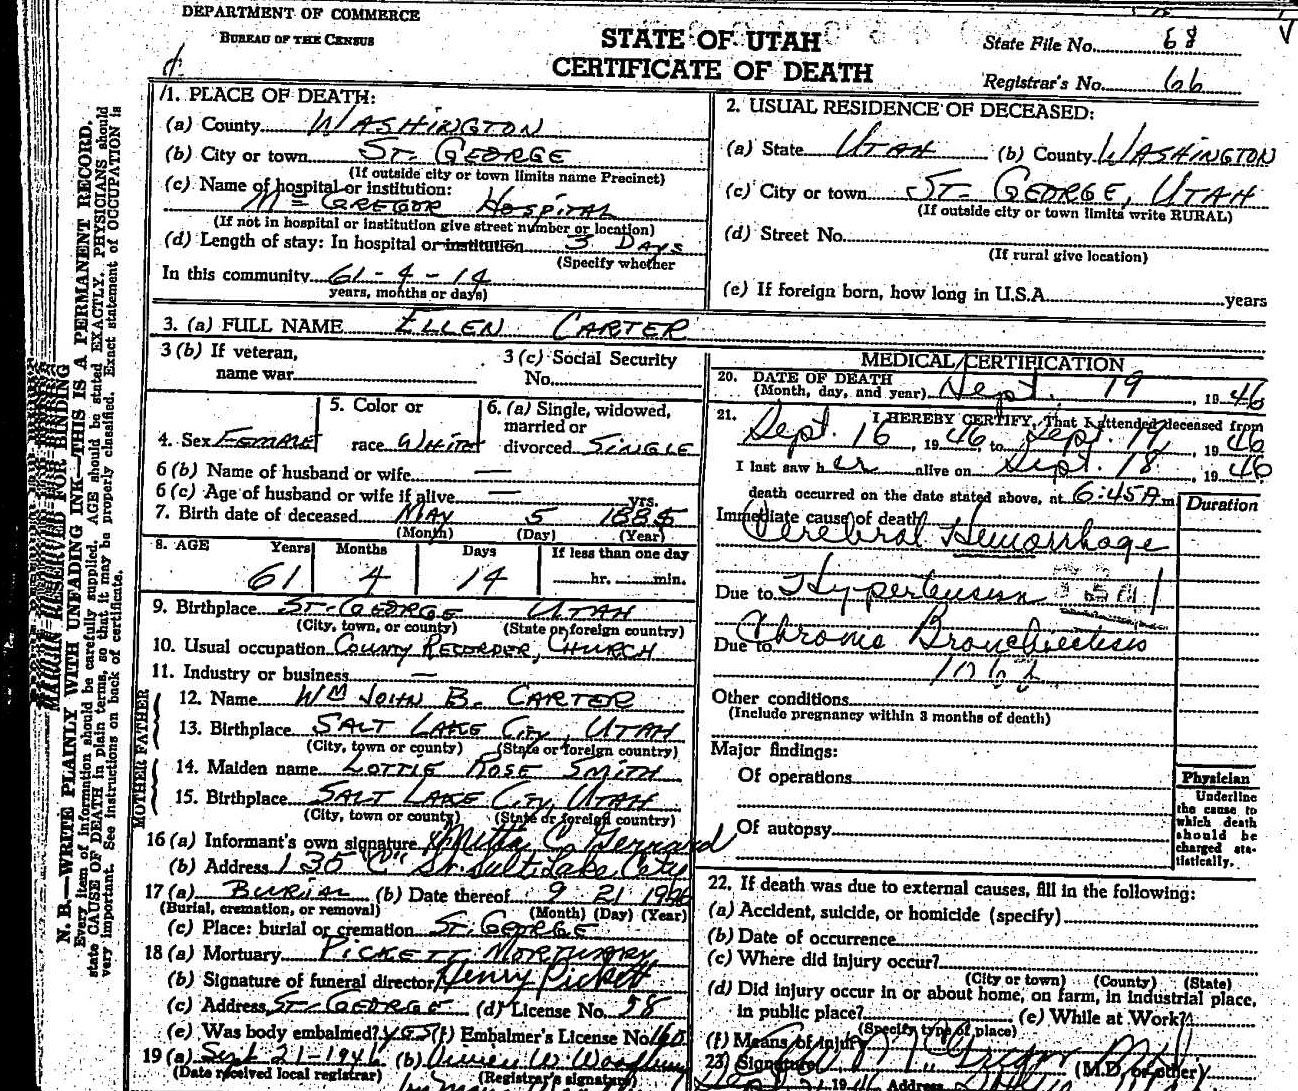 DEPARTMENT OF COMMERCE
BUREAU OF THE CENSUS
STATE OF UTAH
CERTIFICATE OF DEATH
State File No. 68
Registrar's No. 66
MARGIN RESERVED FOR BINDING
N. B.—WRITE PLAINLY WITH UNFADING INK—THIS IS A PERMANENT RECORD.
Every item of information should be carefully supplied. AGE should be stated EXACTLY. PHYSICIANS should
state CAUSE OF DEATH in plain terms, so that it may be properly classified. Exact statement of OCCUPATION is
very important. See instructions on back of certificate.
1. PLACE OF DEATH:
(a) County WASHINGTON
(b) City or town ST. GEORGE
(If outside city or town limits name Precinct)
(c) Name of hospital or institution:
Mc GREGOR HOSPITAL
(If not in hospital or institution give street number or location)
(d) Length of stay: In hospital or institution 3 DAYS
(Specify whether
In this community 61-4-14
years, months or days)
2. USUAL RESIDENCE OF DECEASED:
(a) State UTAH (b) County WASHINGTON
(c) City or town ST. GEORGE, UTAH
(If outside city or town limits write RURAL)
(d) Street No.
(If rural give location)
(e) If foreign born, how long in U.S.A. years
3. (a) FULL NAME ELLEN CARTER
3 (b) If veteran,
name war
3 (c) Social Security
No.
4. Sex FEMALE
5. Color or
race WHITE
6. (a) Single, widowed,
married or
divorced SINGLE
6 (b) Name of husband or wife —
6 (c) Age of husband or wife if alive — yrs.
7. Birth date of deceased MAY 5 1885
(Month) (Day) (Year)
8. AGE Years Months Days If less than one day
61 4 14 hr. min.
9. Birthplace ST. GEORGE UTAH
(City, town, or county) (State or foreign country)
10. Usual occupation COUNTY RECORDER, CHURCH
11. Industry or business —
FATHER
12. Name WM JOHN B. CARTER
13. Birthplace SALT LAKE CITY, UTAH
(City, town or county) (State or foreign country)
MOTHER
14. Maiden name LOTTIE ROSE SMITH
15. Birthplace SALT LAKE CITY, UTAH
(City, town or county) (State or foreign country)
16 (a) Informant's own signature C.
(b) Address 135 "C" St. Salt Lake City
17 (a) BURIAL (b) Date thereof 9 21 1946
(Burial, cremation, or removal) (Month) (Day) (Year)
(c) Place: burial or cremation ST. GEORGE
18 (a) Mortuary PICKETT MORTUARY
(b) Signature of funeral director Henry Pickett
(c) Address ST. GEORGE (d) License No. 58
(e) Was body embalmed? YES (f) Embalmer's License No. 160
19 (a) Sept 21-1946 (b) W.
(Date received local registrar) (Registrar's signature)
MEDICAL CERTIFICATION
20. DATE OF DEATH
(Month, day, and year) Sept. 19, 1946
21. I HEREBY CERTIFY, That I attended deceased from
Sept. 16, 1946, to Sept. 19, 1946
I last saw her alive on Sept. 18, 1946
death occurred on the date stated above, at 6:45 A m
Duration
Immediate cause of death
Cerebral Hemorrhage
Due to Hypertension
Due to Chronic Bronchiectasis
Other conditions
(Include pregnancy within 3 months of death)
Major findings:
Of operations
Of autopsy
Physician
Underline
the cause to
which death
should be
charged sta-
tistically.
22. If death was due to external causes, fill in the following:
(a) Accident, suicide, or homicide (specify)
(b) Date of occurrence
(c) Where did injury occur?
(City or town) (County) (State)
(d) Did injury occur in or about home, on farm, in industrial place,
in public place? (e) While at Work?
(Specify type of place)
(f) Means of injury
23) Signature (M.D. or other)
Address